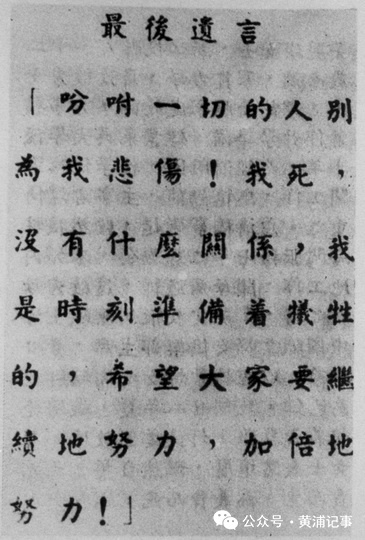 最後遺言
「吩咐一切的人別
為我悲傷！我死，
沒有什麼關係，我
是時刻準備着犠牲
的，希望大家要繼
續地努力，加倍地
努力！」
公众号·黄浦记事